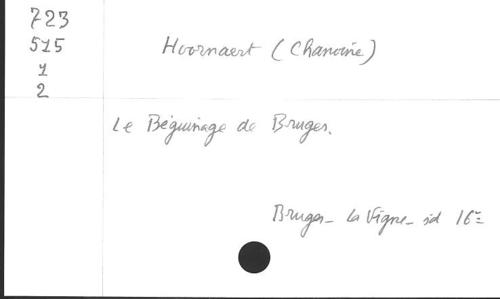 723
515
1
2
Hoornaert (Chanoine)
Le Béguinage de Bruges.
Bruges - La Vigne - sd 16º